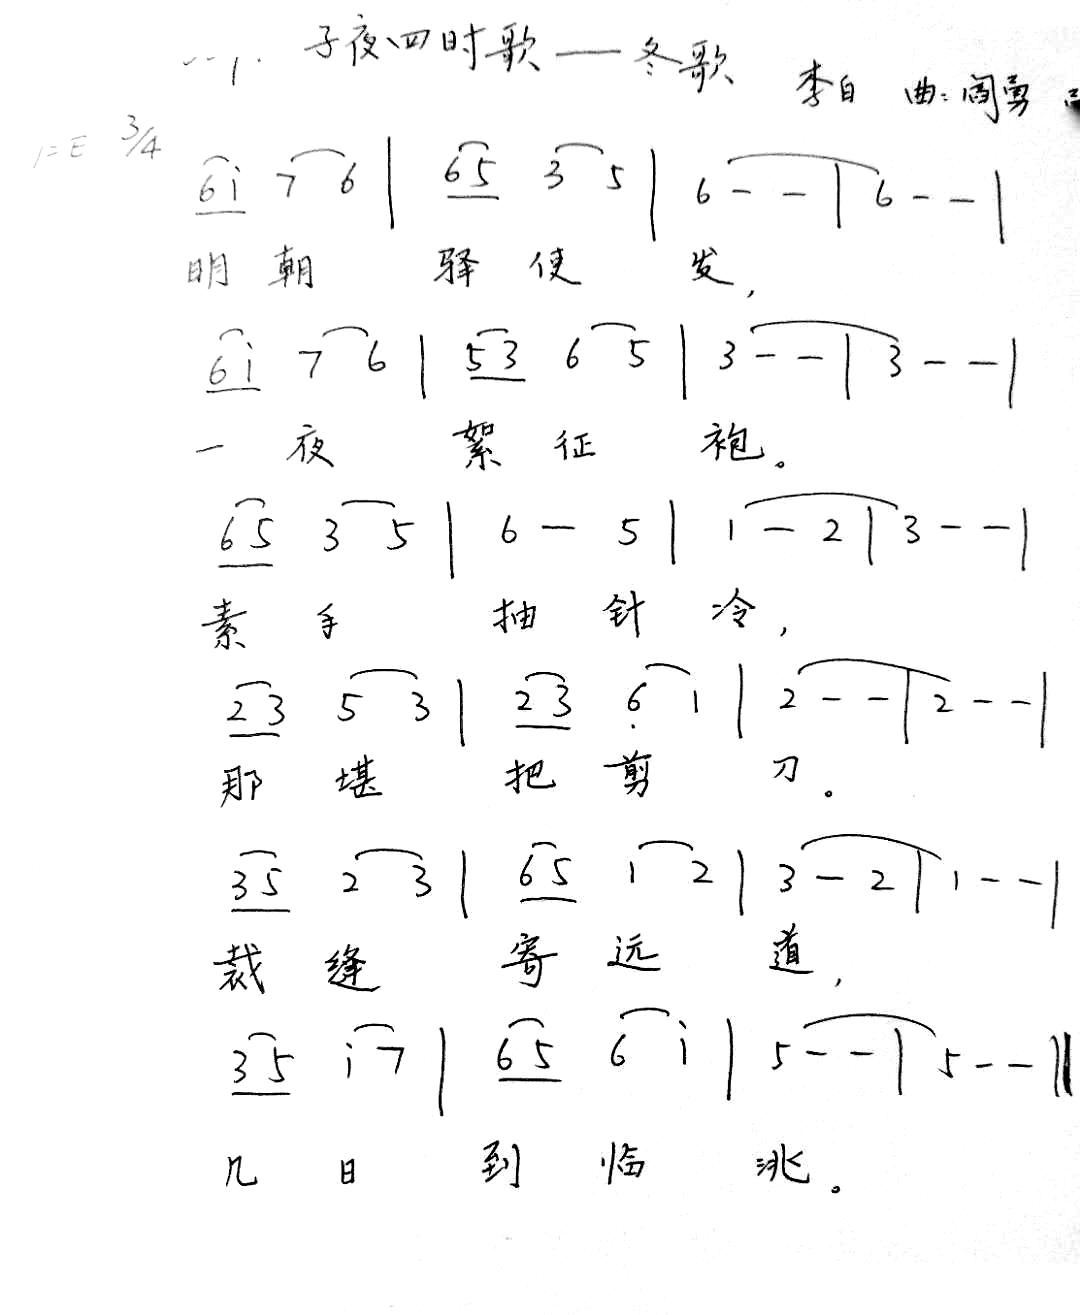 子夜四时歌——冬歌
李白 曲:阎勇
1=E 3/4
6i 7 6 | 65 3 5 | 6 - - | 6 - - |
明 朝 驿 使 发,
6i 7 6 | 53 6 5 | 3 - - | 3 - - |
一 夜 絮 征 袍。
65 3 5 | 6 - 5 | 1 - 2 | 3 - - |
素 手 抽 针 冷,
23 5 3 | 23 6̣ 1 | 2 - - | 2 - - |
那 堪 把 剪 刀。
35 2 3 | 65 1 2 | 3 - 2 | 1 - - |
裁 缝 寄 远 道,
35 i 7 | 65 6 i | 5 - - | 5 - - ‖
几 日 到 临 洮。